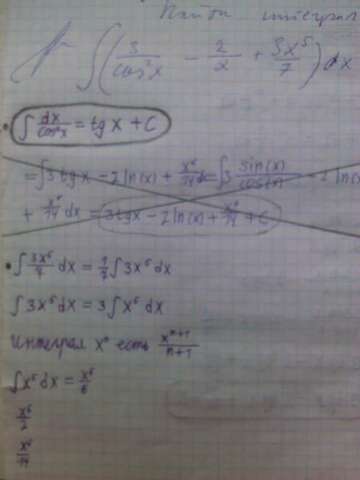 Найти интеграл
∫(3/cos²x − 2/x + 3x⁵/7)dx
• ∫ dx/cos²x = tg x + C
= ∫3 tg x − 2 ln(x) + x⁶/14 = ∫3 sin(x)/cos(x) − 2 ln(x)
+ x⁶/14 dx = 3tgx − 2 ln(x) + x⁶/14 + C
• ∫ 3x⁵/7 dx = 1/7 ∫ 3x⁵ dx
∫ 3x⁵ dx = 3 ∫ x⁵ dx
Интеграл xⁿ есть xⁿ⁺¹/n+1
∫ x⁵ dx = x⁶/6
x⁶/2
x⁶/14